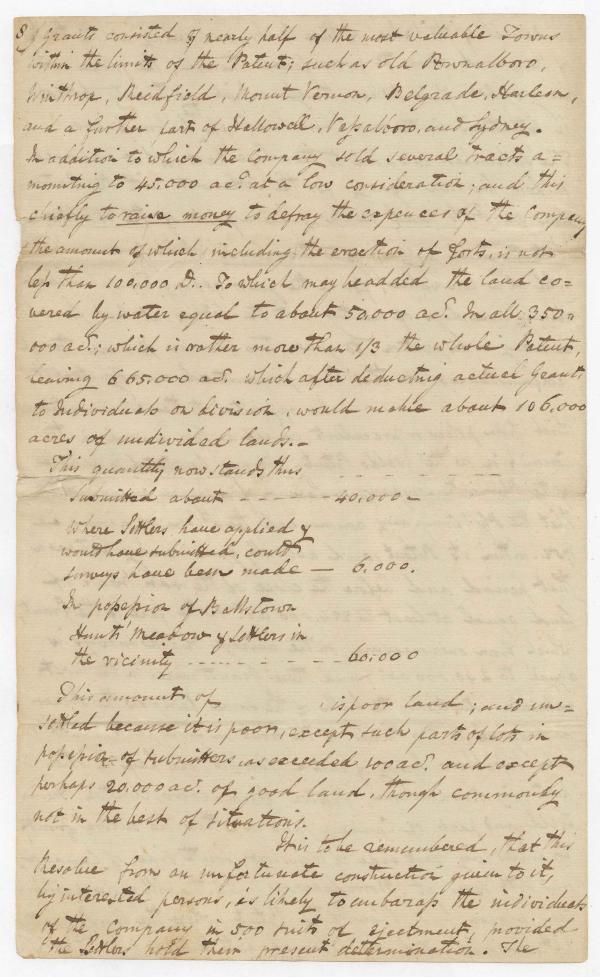 8) Grants consisted of nearly half of the most valuable Towns
within the limits of the Patent; such as old Pownalboro,
Winthrop, Reidfield, Mount Vernon, Belgrade, Harlem,
and a further part of Hallowell, Vassalboro, and Sydney.
In addition to which the Company sold several tracts a=
mounting to 45,000 acs. at a low consideration; and this
chiefly to raise money to defray the expences of the Company
the amount of which, including the erection of forts, is not
less than 100,000 D. To which may be added the land co=
vered by water equal to about 50,000 acs. In all 350=
000 acs.; which is rather more than 1/3 the whole Patent,
leaving 665,000 acs. which after deducting actual Grants
to Individuals on division, would make about 106,000
acres of undivided lands.—
This quantity now stands thus
Submitted about - - - - - 40,000 -
Where Settlers have applied &
would have submitted, could
surveys have been made — 6,000.
In possession of Ballstown
Hunts' Meadow & Settlers in
the vicinity - - - - - - - - - 60,000
This amount of is poor land; and un=
settled because it is poor, except such parts of lots in
possession of submitters, as exceeded 100 acs. and except
perhaps 20,000 acs. of good land, though commonly
not in the best of situations.
It is to be remembered, that this
Resolve from an unfortunate construction given to it,
by interested persons, is likely to embarass the individuals
of the Company in 500 suits of ejectment, provided
the Settlers hold their present determination. The